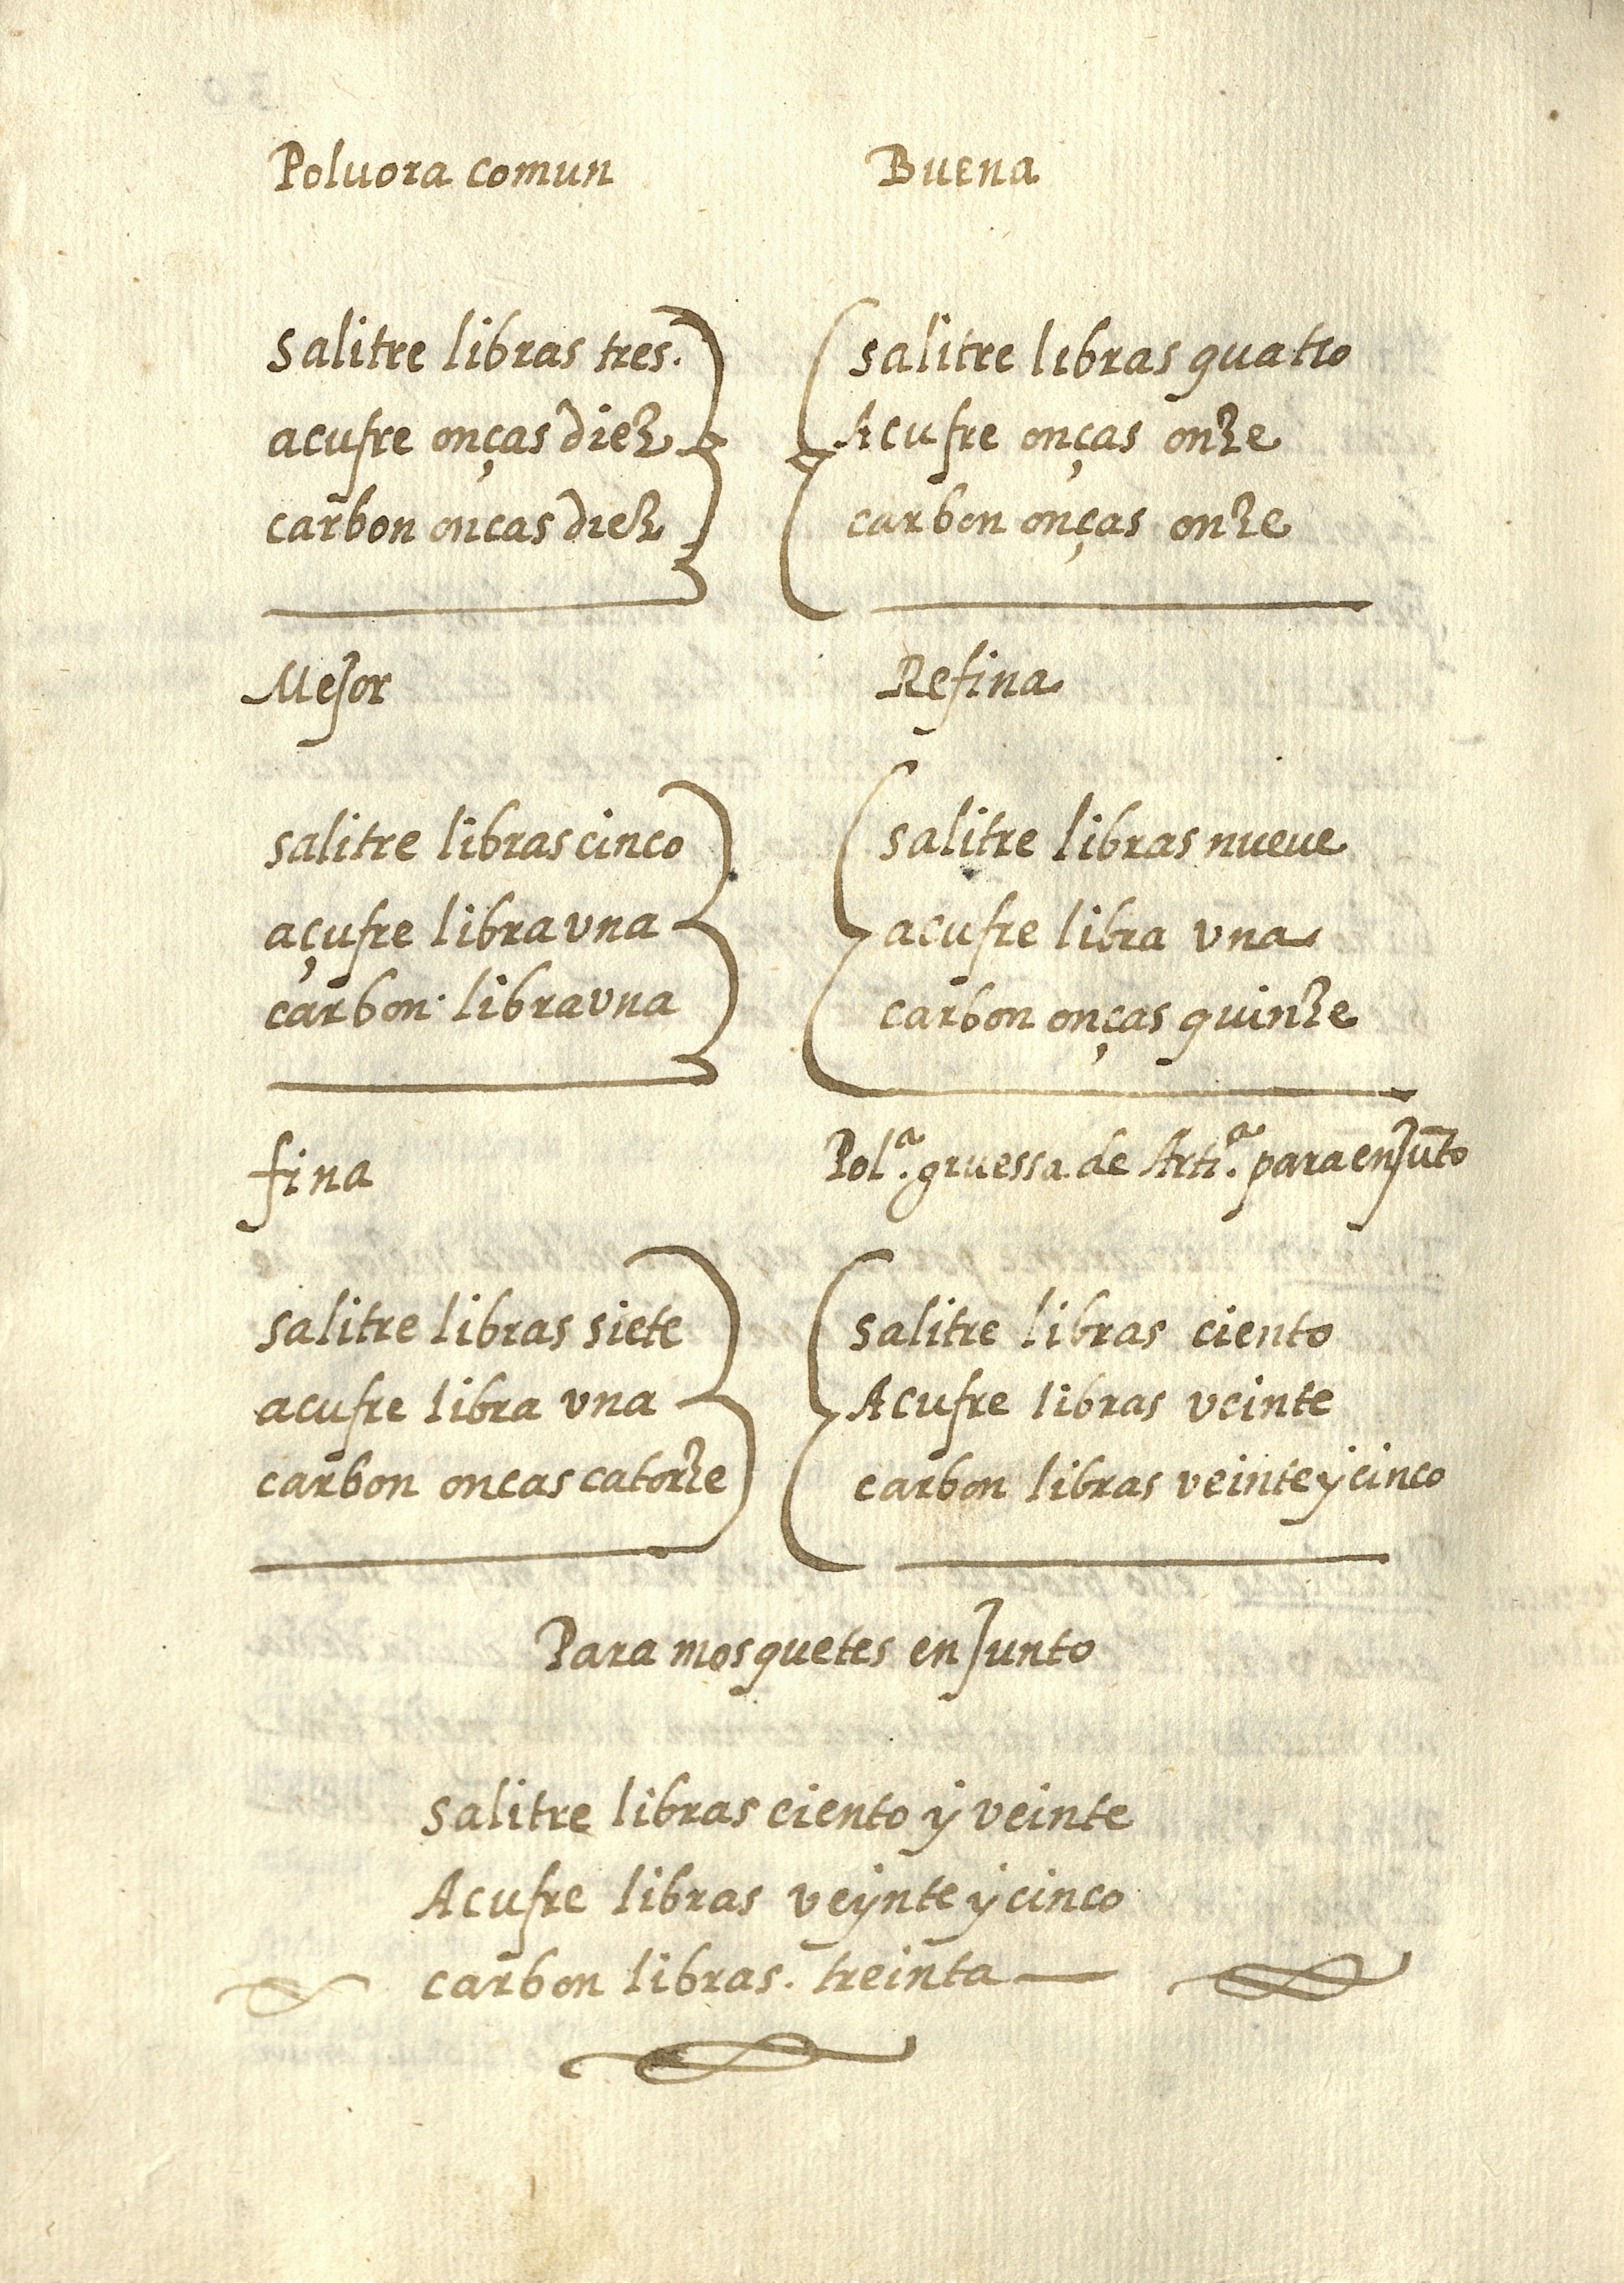 Poluora comun
Salitre libras tres.
acufre onças diez
carbon oncas diez
Buena
Salitre libras quatro
Acufre onças onze
carbon onças onze
Mejor
salitre libras cinco
açufre libra vna
carbon libra vna
Refina
Salitre libras nueue
acufre libra vna
carbon onças quinze
fina
salitre libras siete
acufre libra vna
carbon oncas catorze
Polª. gruessa de Artiª. para enjunto
Salitre libras ciento
Acufre libras veinte
carbon libras veinte y cinco
Para mosquetes enjunto
Salitre libras ciento y veinte
Acufre libras veynte y cinco
carbon libras. treinta